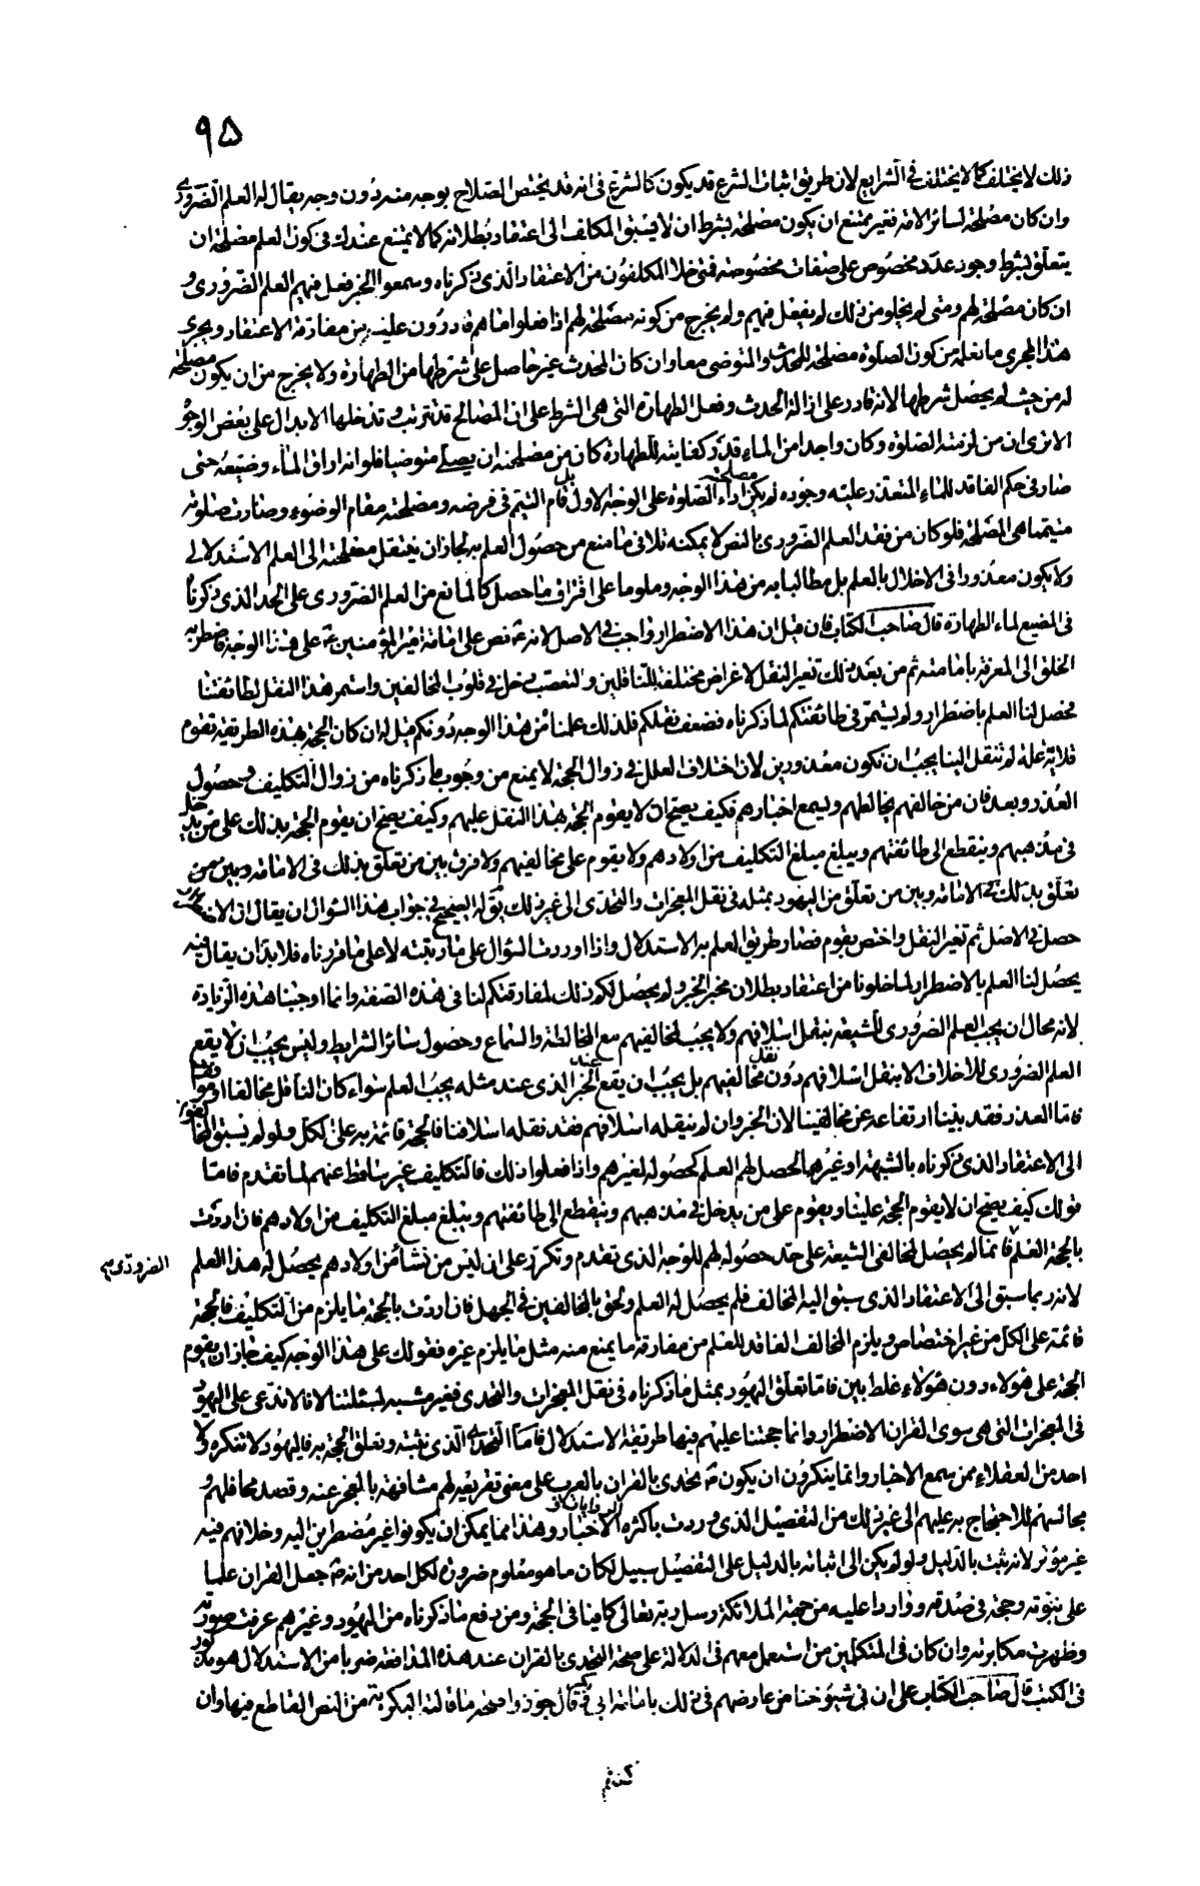 ٩۵
ذلك لا يختلف كما لا يختلف في الشرايع لان طريق اثبات الشرع قد يكون كالشرع في انه قد يختص الصلاح بوجه منه دون وجه يقال له العلم الضروري
وان كان مصلحة لسائر الامة فغير ممتنع ان يكون مصلحة بشرط ان لا يسبق المكلف الى اعتقاد بطلانه كما لا يمتنع عندك في كون العلم مصلحة ان
يتعلق بشرط وجود عدد مخصوص على صفات مخصوصة فمتى خلا المكلفون من الاعتقاد الذي ذكرناه وسمعوا الخبر فعل فيهم العلم الضروري و
ان كان مصلحة لهم ومتى لم يخلو من ذلك لم يفعل فيهم ولم يخرج من كونه مصلحة لهم اذا فعلوا ما هم قادرون عليه من مفارقة الاعتقاد ويجري
هذا المجرى ما نعلمه من كون الصلوة مصلحة للمحدث والمتوضي معا وان كان المحدث غير حاصل على شرطها من الطهارة ولا يخرج من ان يكون مصلحة
له من حيث لم يحصل شرطها لانه قادر على ازالة الحدث وفعل الطهارة التي هي الشرط على ان المصالح قد تترتب وتدخلها الابدال على بعض الوجو
الا ترى ان من لزمته الصلوة وكان واجدا من الماء قدر كفايته للطهارة كان من مصلحته ان يصلي متوضيا فلو انه اراق الماء وضيعه حتى
صار في حكم الفاقد للماء المتعذر عليه وجوده لم يكن اداء الصلوة على الوجه الاول مصلحته بل قام التيمم في فرضه ومصلحته مقام الوضوء وصارت صلوته
متيمما هي المصلحة فلو كان من فقد العلم الضروري بالنص لا يمكنه تلافي ما منع من حصول العلم به لجاز ان ينتقل مصلحته الى العلم الاستدلالي
ولا يكون معذورا في الاخلال بالعلم بل مطالبا به من هذا الوجه وملوما على اقتراف ما حصل كالمانع من العلم الضروري على الحد الذي ذكرناه
في المضيع لماء الطهارة قال صاحب الكتاب فان قيل ان هذا الاضطرار واجب في الاصل لانه ع نص على امامة امير المؤمنين ع على هذا الوجه فاضطر به
الخلق الى المعرفة بامامته ثم من بعد ذلك تغير النقل لاغراض مختلفة للناقلين والتعصب دخل في قلوب المخالفين واستمر هذا النقل لطائفتنا
فحصل لنا العلم باضطرار ولم يستمر في طائفتكم لما ذكرناه فضعف نقلكم فلذلك علمنا من هذا الوجه دونكم قيل له ان كان الحجة بهذه الطريقة تقوم
فلاية علة لم تنقل الينا يجب ان نكون معذورين لان اختلاف العلل في زوال الحجة لا يمنع من وجوب ما ذكرناه من زوال التكليف وحصول
العذر وبعد فان من خالفهم يخالطهم ويسمع اخبارهم فكيف يصح ان لا يقوم الحجة بهذا النقل عليهم وكيف يصح ان يقوم الحجة بذلك على من يدخل
في مذهبهم وينقطع الى طائفتهم ويبلغ مبلغ التكليف من اولادهم ولا يقوم على مخالفيهم ولا فرق بين من تعلق بذلك في الامامة وبين من
تعلق بذلك في الامامة وبين من تعلق من اليهود بمثله في نقل المعجزات والتحدي الى غير ذلك يقول له الصحيح في جواب هذا السؤال ان يقال ان الا
حصل في الاصل ثم تغير النقل واختص بقوم فصار طريق العلم به الاستدلال واذا اوردت السؤال على ما رتبته لا على ما قررناه فلا بد ان يقال فيه
يحصل لنا العلم بالاضطرار لما خلونا من اعتقاد بطلان مخبر الخبر ولم يحصل لكم ذلك لمفارقتكم لنا في هذه الصفة وانما اوجبنا هذه الزيادة
لانه محال ان يجب العلم الضروري للشيعة بنقل اسلافهم ولا يجب لمخالفيهم مع المخالطة والسماع وحصول سائر الشرايط وليس يجب ان لا يقع
العلم الضروري للاخلاف الا بنقل اسلافهم دون نقل مخالفيهم بل يجب ان يقع عند الخبر الذي عند مثله يجب العلم سواء كان الناقل مخالفا او موافقا
فاما العذر فقد بينا ارتفاعه عن مخالفينا لان الخبر وان لم ينقله اسلافهم فقد نقله اسلافنا فالحجة قائمة به على الكل ولو لم يسبق المخالفون
الى الاعتقاد الذي ذكرناه بالشبهة او غيرها لحصل لهم العلم كحصوله لغيرهم واذا فعلوا ذلك فالتكليف غير ساقط عنهم لما تقدم فاما
قولك كيف يصح ان لا يقوم الحجة علينا ويقوم على من يدخل في مذهبهم وينقطع الى طائفتهم ويبلغ مبلغ التكليف من اولادهم فان اردت
بالحجة العلم فانما لم يحصل لمخالفي الشيعة على حد حصوله لهم للوجه الذي تقدم وتكرر على ان ليس من نشأ من اولادهم يحصل له هذا العلم
الضروري
لانه ربما سبق الى الاعتقاد الذي سبق اليه المخالف فلم يحصل له العلم ولحق بالمخالفين في الجهل فان اردت بالحجة ما يلزم من التكليف فالحجة
قائمة على الكل من غير اختصاص ويلزم المخالف الفاقد للعلم من مفارقة ما يمنع منه مثل ما يلزم غيره فقولك على هذا الوجه كيف جاز ان يقوم
الحجة على هؤلاء دون هؤلاء غلط بين فاما تعلق اليهود بمثل ما ذكرناه في نقل المعجزات والتحدي فغير مشبه لمسئلتنا لانا لا ندعي على اليهود
في المعجزات التي هي سوى القران الاضطرار وانما حجتنا عليهم فيها طريقة الاستدلال فاما التحدي الذي نثبته وتعلق الحجة به فاليهود لا تنكره ولا
احد من العقلاء ممن سمع الاخبار وانما ينكرون ان يكون ع تحدى بالقران بالعرب على معنى تقريعه لهم مشافهة بالعجز عنه وقصد محافلهم و
مجالسهم للاحتجاج به عليهم الى غير ذلك من التفصيل الذي وردت باكثره الاخبار وهذا انما يمكن ان يكونوا غير مضطرين اليه وخلافهم فيه
غير مؤثر لانه يثبت بالدليل ولو لم يكن الى اثباته بالدليل على التفصيل سبيل لكان ما هو معلوم ضرورة لكل احد من انه ع جعل القران علما
على نبوته وحجة في صدقه وواردا عليه من جهة الملائكة ورسل ربه تعالى كافيا في الحجة ومن دفع ما ذكرناه من اليهود وغيرهم عرفت صورته
وظهرت مكابرته وان كان في المتكلمين من استعمل معهم في الدلالة على صحة التحدي بالقران عند هذه المدافعة ضربا من الاستدلال هو مذكور
في الكتب قال صاحب الكتاب على ان في شيوخنا من عارضهم في ذلك بامامة ابي بكر قال جوزوا صحة ما قالته البكرية من النص القاطع فيها وان